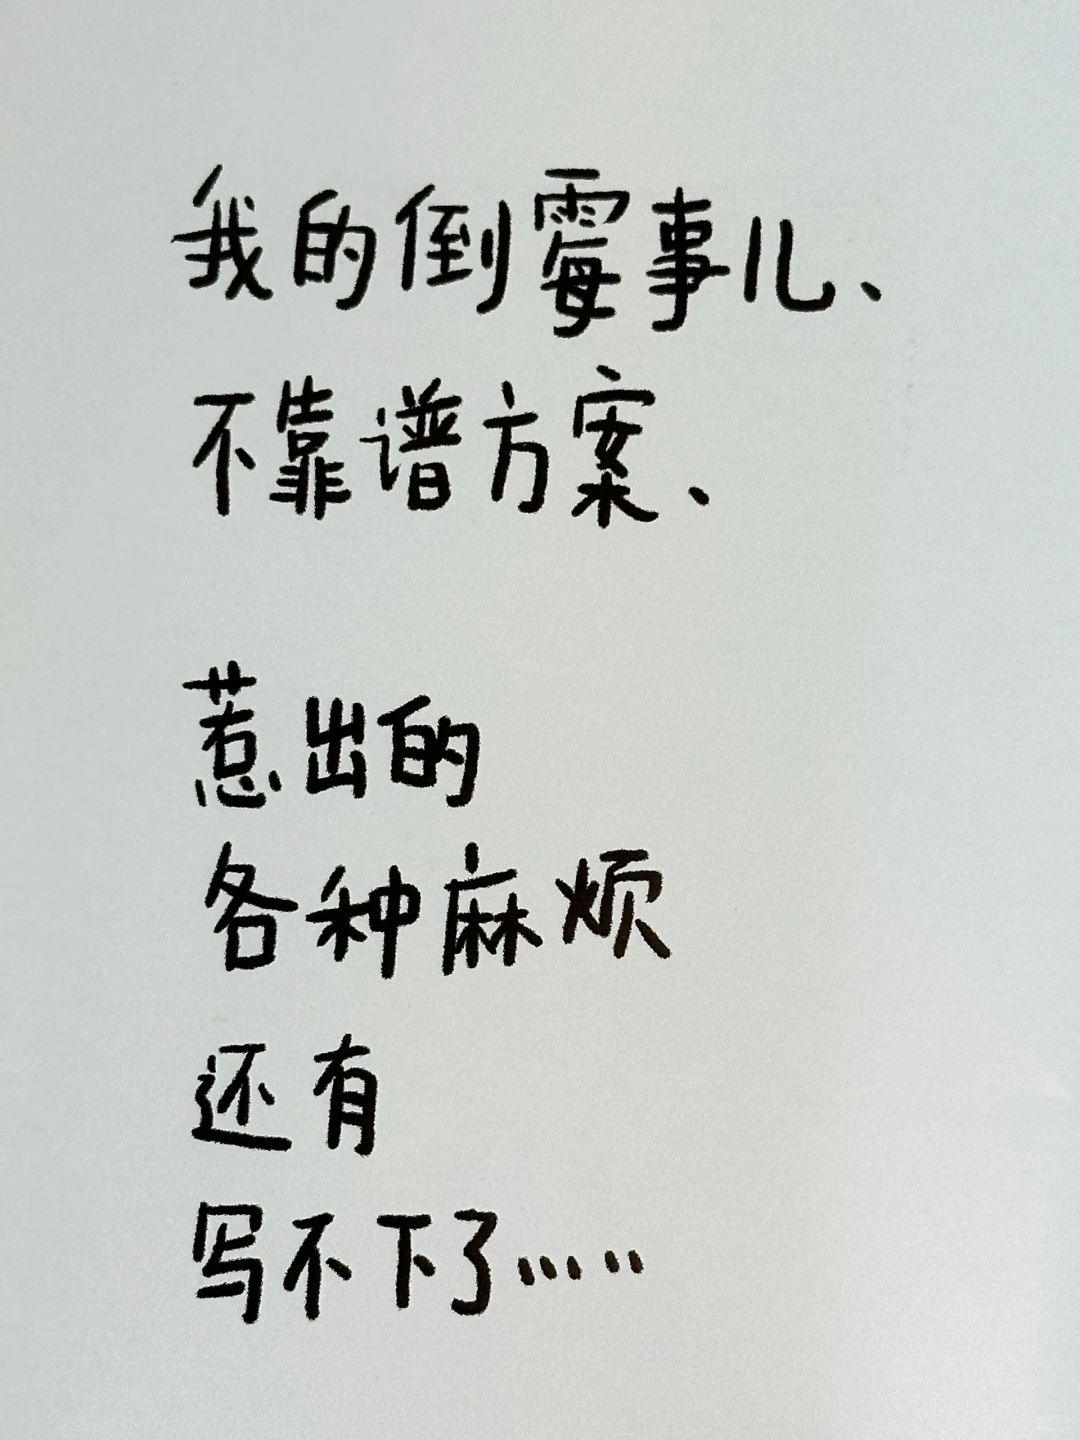 我的倒霉事儿、
不靠谱方案、
惹出的
各种麻烦
还有
写不下了……